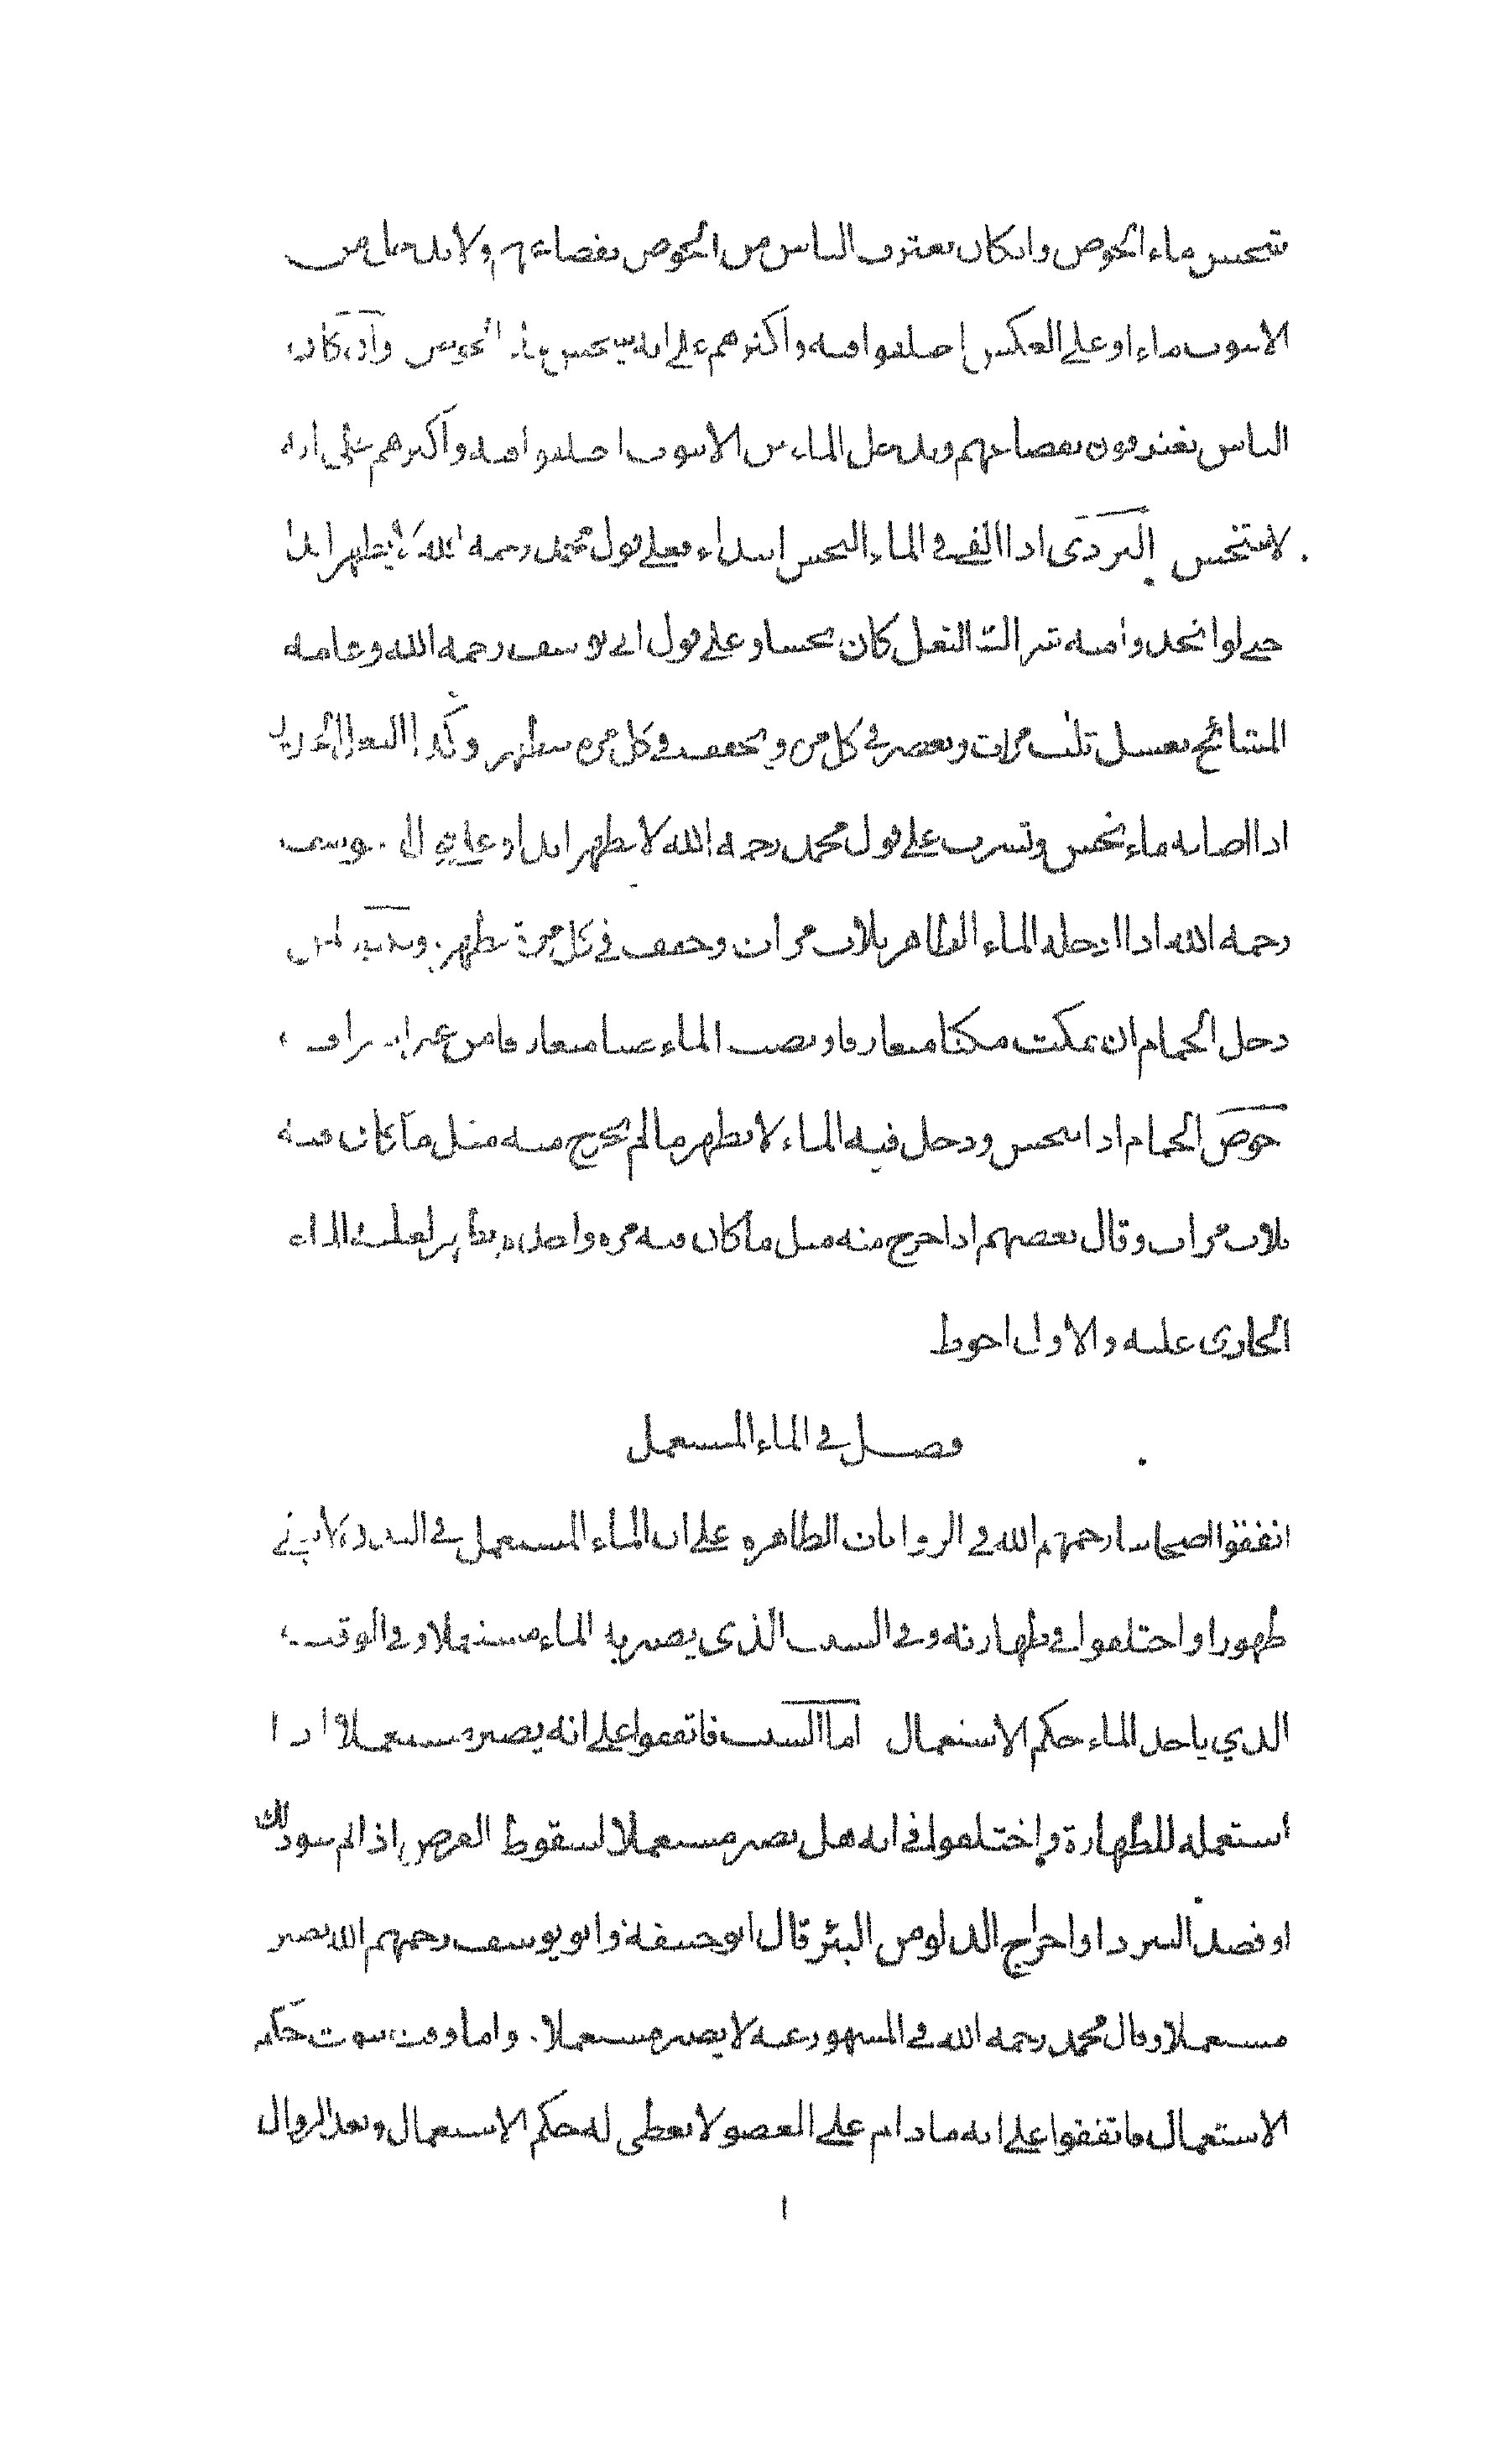 يتنجس ماء الحوض وان كان يغترف الناس من الحوض بقصاعهم ولا يدخل من
الانبوب ماء او على العكس اختلفوا فيه واكثرهم على انه يتنجس ماء الحوض وان كان
الناس يغترفون بقصاعهم ويدخل الماء من الانبوب اختلفوا فيه واكثرهم على انه
لا يتنجس البردى اذا القي في الماء النجس ابتداء فعلى قول محمد رحمه الله لا يطهر ابدا
حتى لو اتخذ وا منه شراك النعل كان نجسا وعلى قول ابي يوسف رحمه الله وعامة
المشائخ يغسل ثلث مرات ويعصر في كل مرة ويجفف في كل مرة فيطهر وكذا النعل الجديد
اذا اصابه ماء نجس وتشرب على قول محمد رحمه الله لا يطهر ابدا وعلى قول ابي يوسف
رحمه الله اذا ادخله الماء الطاهر ثلاث مرات وجفف في كل مرة يطهر وينبغي لمن
دخل الحمام ان يمكث مكثا متعارفا ويصب الماء صبا متعارفا من غير اسراف
حوض الحمام اذا تنجس ودخل فيه الماء لا يطهر ما لم يخرج منه مثل ما كان فيه
ثلاث مرات وقال بعضهم اذا خرج منه مثل ما كان فيه مرة واحدة يطهر لغلبة الماء
الجارى عليه والاول احوط
فصل في الماء المستعمل
اتفقوا اصحابنا رحمهم الله في الروايات الظاهرة على ان الماء المستعمل في البدن لا يبقى
طهورا واختلفوا في طهارته وفي السبب الذى يصير به الماء مستعملا وفي الوقت
الذي ياخذ الماء حكم الاستعمال اما السبب فاتفقوا على انه يصير مستعملا اذا
استعمله للطهارة واختلفوا في انه هل يصير مستعملا لسقوط الفرض اذا لم ينو ذلك
او قصد التبرد او اخراج الدلو من البئر قال ابو حنيفة وابو يوسف رحمهم الله يصير
مستعملا وقال محمد رحمه الله في المشهور عنه لا يصير مستعملا. واما وقت ثبوت حكم
الاستعمال فاتفقوا على انه ما دام على العضو لا يعطى له حكم الاستعمال وبعد الزوال